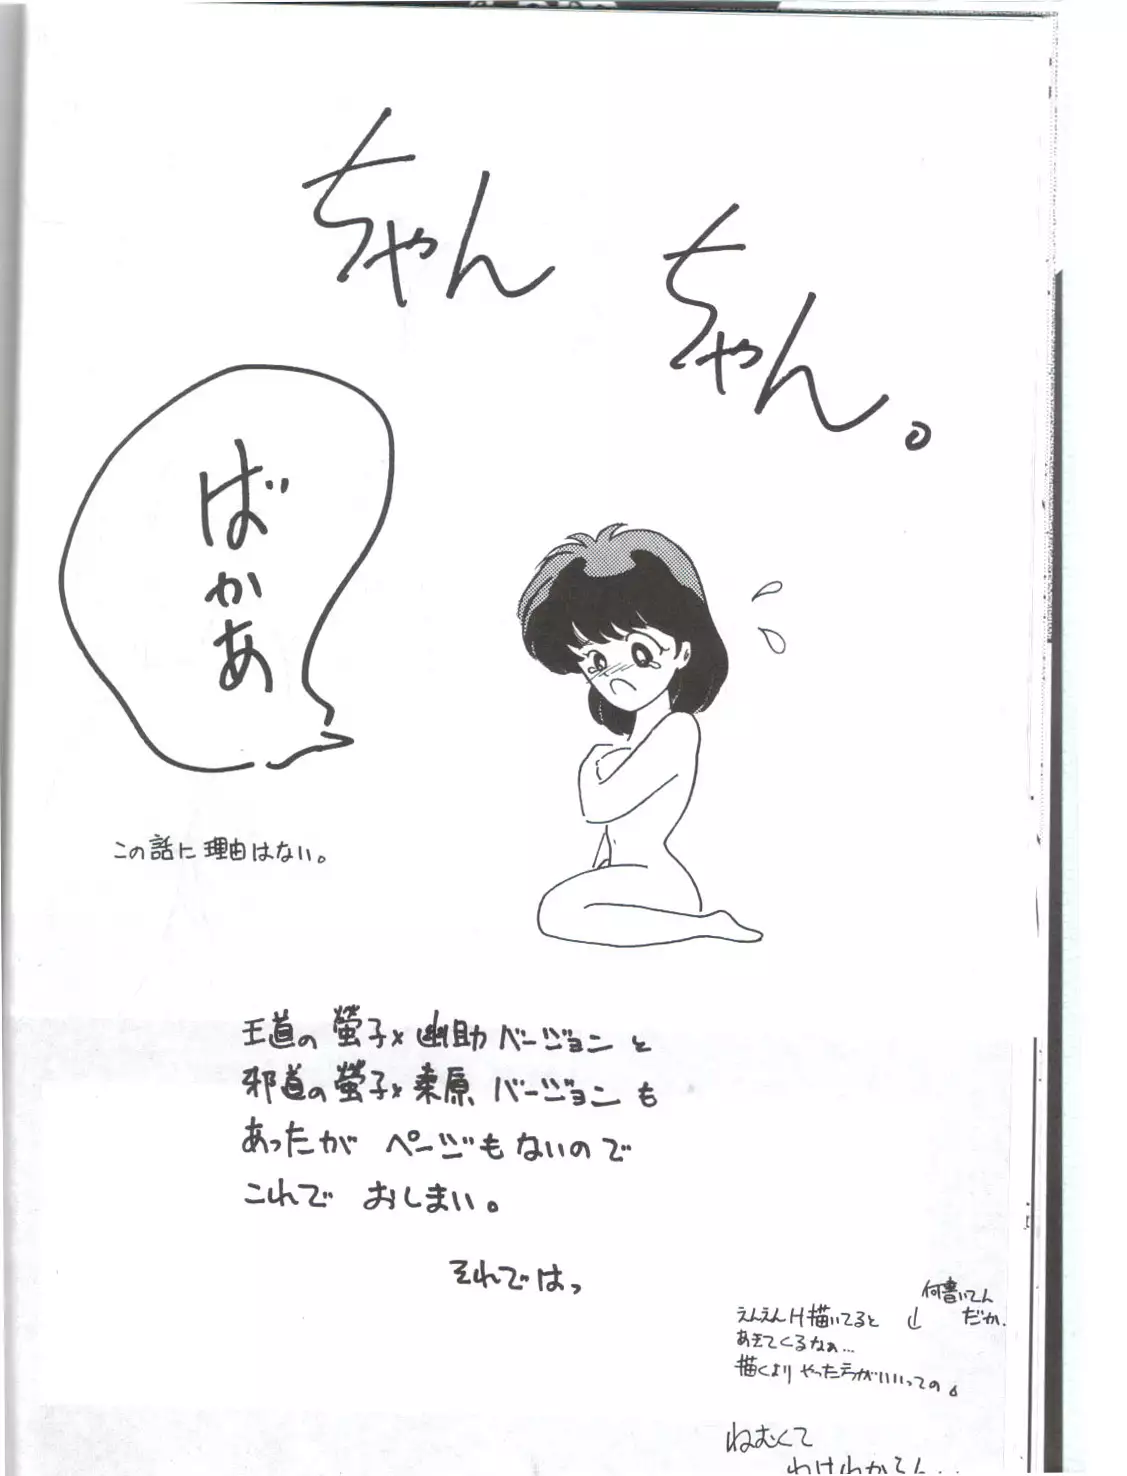 ちゃん
ちゃん。
ばかあ
この話に理由はない。
王道の螢子×幽助バージョンと
邪道の螢子×桑原バージョンも
あったが ページもないので
これで おしまい。
それではっ
何書いてん
だか.
えんえんH描いてると
あきてくるなぁ…
描くより やった方がいいっての。
ねむくて
わけわからん…